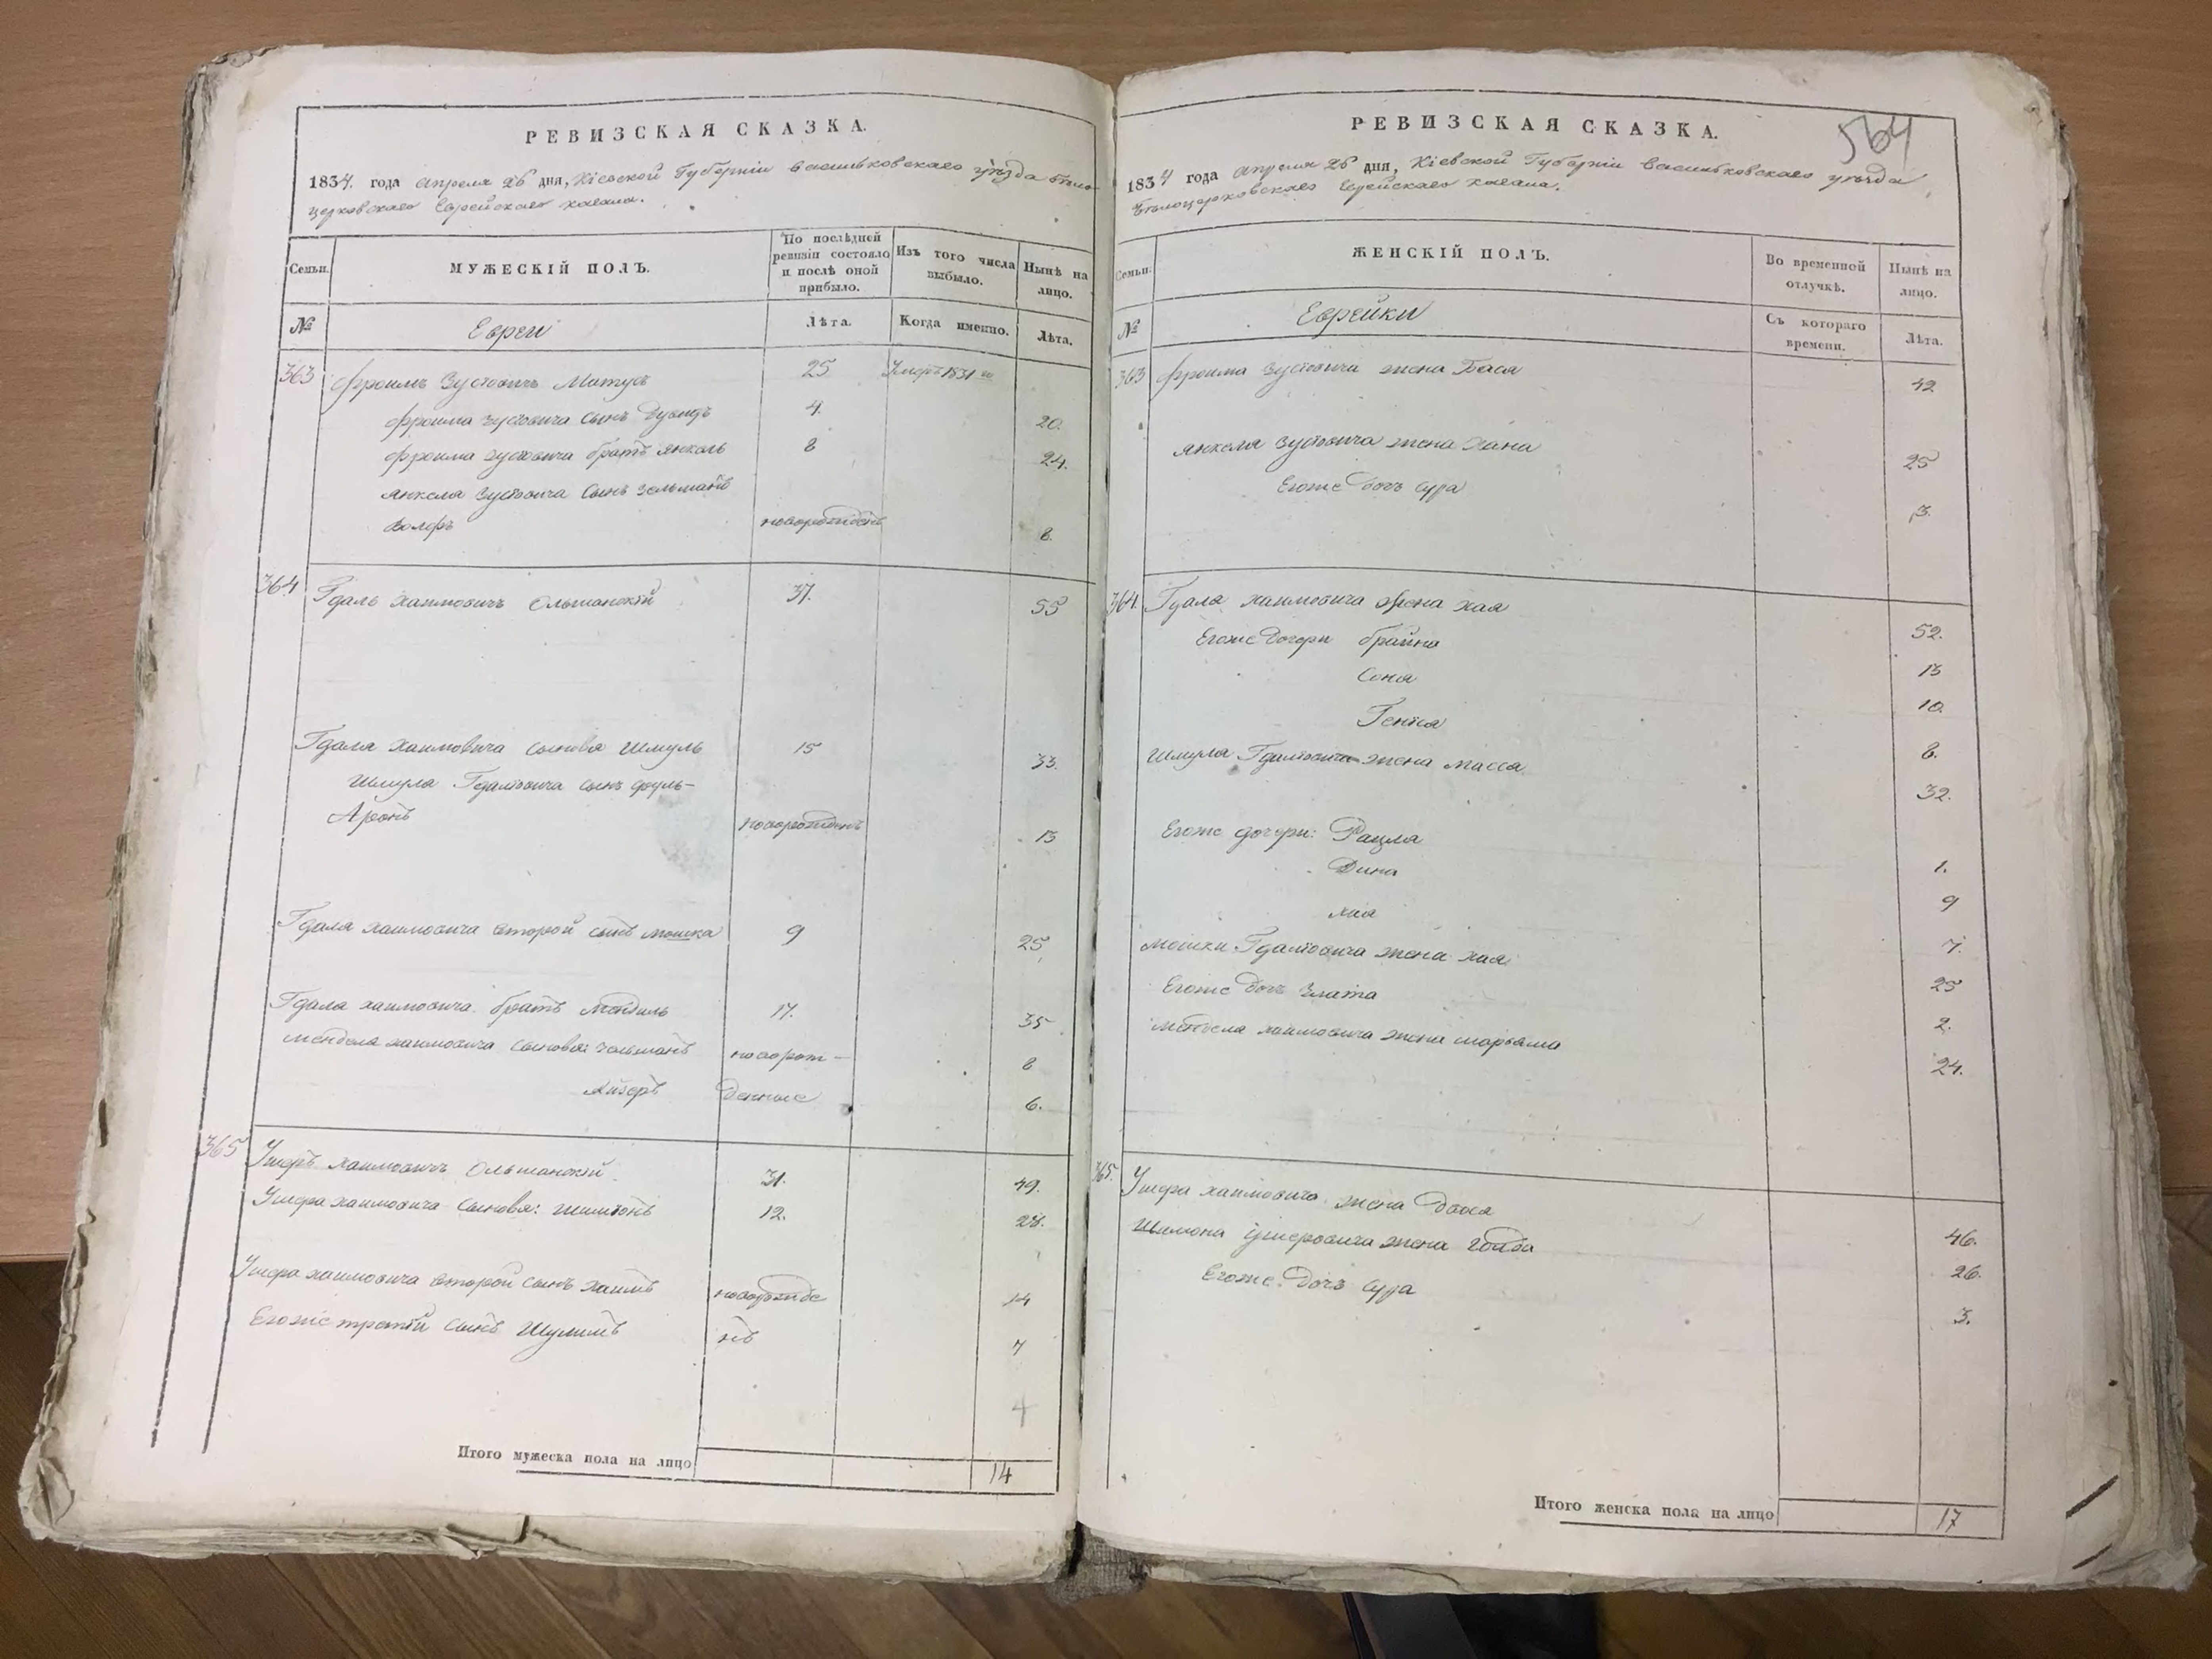 РЕВИЗСКАЯ СКАЗКА.
1834. года апреля 26 дня, Кіевской Губерніи Васильковскаго уѣзда Бѣло-
церковскаго Еврейскаго кагала.
Семьи.
МУЖЕСКІЙ ПОЛЪ.
По послѣдней ревизіи состояло и послѣ оной прибыло.
Изъ того числа выбыло.
Нынѣ на лицо.
№
Евреи
Лѣта.
Когда именно.
Лѣта.
363 Фроимъ Зусьовичъ Матусъ 25 Умеръ 1831
Фроима Зусьовича сынъ Дувидъ 4. 20.
Фроима Зусьовича братъ Янкель 8 24.
Янкеля Зусьовича сынъ Зельманъ
Волфъ новорожденъ 8.
364 Гдаль Хаимовичъ Ольшанскій 37. 55
Гдаля Хаимовича сыновя Шмуль 15 33.
Шмуля Гдальовича сынъ Сруль-
Аронъ новорожденъ 13
Гдаля Хаимовича второй сынъ Мошка 9 25
Гдаля Хаимовича братъ Мендель 17. 35
Менделя Хаимовича сыновя: Зельманъ новорож- 8
Лейзеръ денные 6.
365 Ушеръ Хаимовичъ Ольшанскій 31. 49.
Ушера Хаимовича сыновя: Шимонъ 12. 28.
Ушера Хаимовича второй сынъ Хаимъ новорожде 14
Егоже третій сынъ Шулимъ нъ 7
4
Итого мужеска пола на лицо 14
РЕВИЗСКАЯ СКАЗКА.
564
1834 года апреля 26 дня, Кіевской Губерніи Васильковскаго уѣзда
Бѣлоцерковскаго Еврейскаго кагала.
Семьи.
ЖЕНСКІЙ ПОЛЪ.
Во временной отлучкѣ.
Нынѣ на лицо.
№
Еврейки
Съ котораго времени.
Лѣта.
363 Фроима Зусьовича жена Бася 42
Янкеля Зусьовича жена Хана 25
Егоже дочь Сура 3.
364. Гдаля Хаимовича жена Хая 52.
Егоже дочери Брайна 13
Соня 10.
Гентя 8.
Шмуля Гдальовича жена Масса 32.
Егоже дочери: Рацля 1.
Дина 9
Лая 7.
Мошки Гдальовича жена Хая 25
Егоже дочь Злата 2.
Менделя Хаимовича жена Марьяма 24.
365. Ушера Хаимовича жена Двося 46.
Шимона Ушеровича жена Голда 26.
Егоже дочь Сура 3.
Итого женска пола на лицо 17